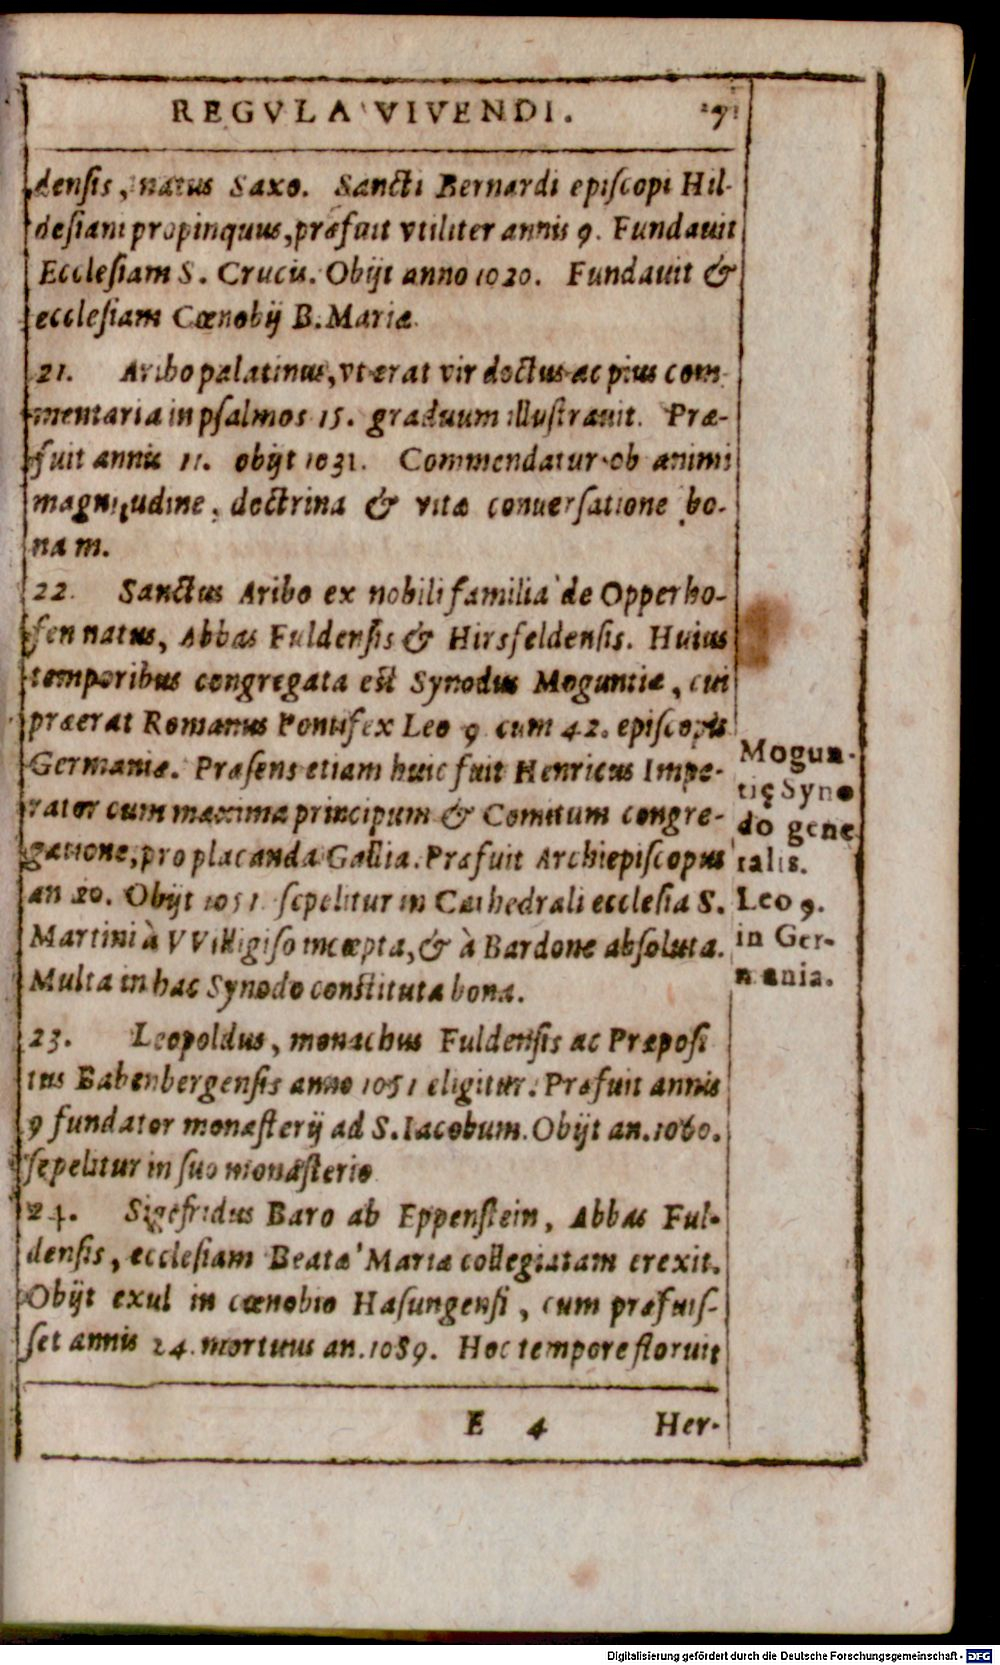 REGVLA VIVENDI. 71
densis, natus Saxo. Sancti Bernardi episcopi Hil-
desiani propinquus, præfuit vtiliter annis 9. Fundauit
Ecclesiam S. Crucis. Obijt anno 1020. Fundauit &
ecclesiam Cœnobij B. Mariæ.
21. Aribo palatinus, vt erat vir doctus ac pius com-
mentaria in psalmos 15. graduum illustrauit. Præ-
fuit annis 11. obijt 1031. Commendatur ob animi
magnitudine, doctrina & vitæ conuersatione bo-
nam.
22. Sanctus Aribo ex nobili familia de Opperho-
fen natus, Abbas Fuldensis & Hirsfeldensis. Huius
temporibus congregata est Synodus Moguntiæ, cui
præerat Romanus Pontifex Leo 9 cum 42. episcopis
Germaniæ. Præsens etiam huic fuit Henricus Impe-
rator cum maxima principum & Comitum congre-
gatione, pro placanda Gallia. Præfuit Archiepiscopus
an 20. Obijt 1051. sepelitur in Cathedrali ecclesia S.
Martini à VVilligiso incœpta, & à Bardone absoluta.
Multa in hac Synodo constituta bona.
Mogun-
tię Syno
do gene
ralis.
Leo 9.
in Ger-
mania.
23. Leopoldus, monachus Fuldensis ac Præposi
tus Babenbergensis anno 1051 eligitur. Præfuit annis
9 fundator monasterij ad S. Iacobum. Obijt an. 1060.
sepelitur in suo monasterio
24. Sigefridus Baro ab Eppenstein, Abbas Ful-
densis, ecclesiam Beatæ Mariæ collegiatam erexit.
Obijt exul in cœnobio Hasungensi, cum præfuis-
set annis 24. mortuus an. 1089. Hoc tempore floruit
E 4 Her-
Digitalisierung gefördert durch die Deutsche Forschungsgemeinschaft - DFG